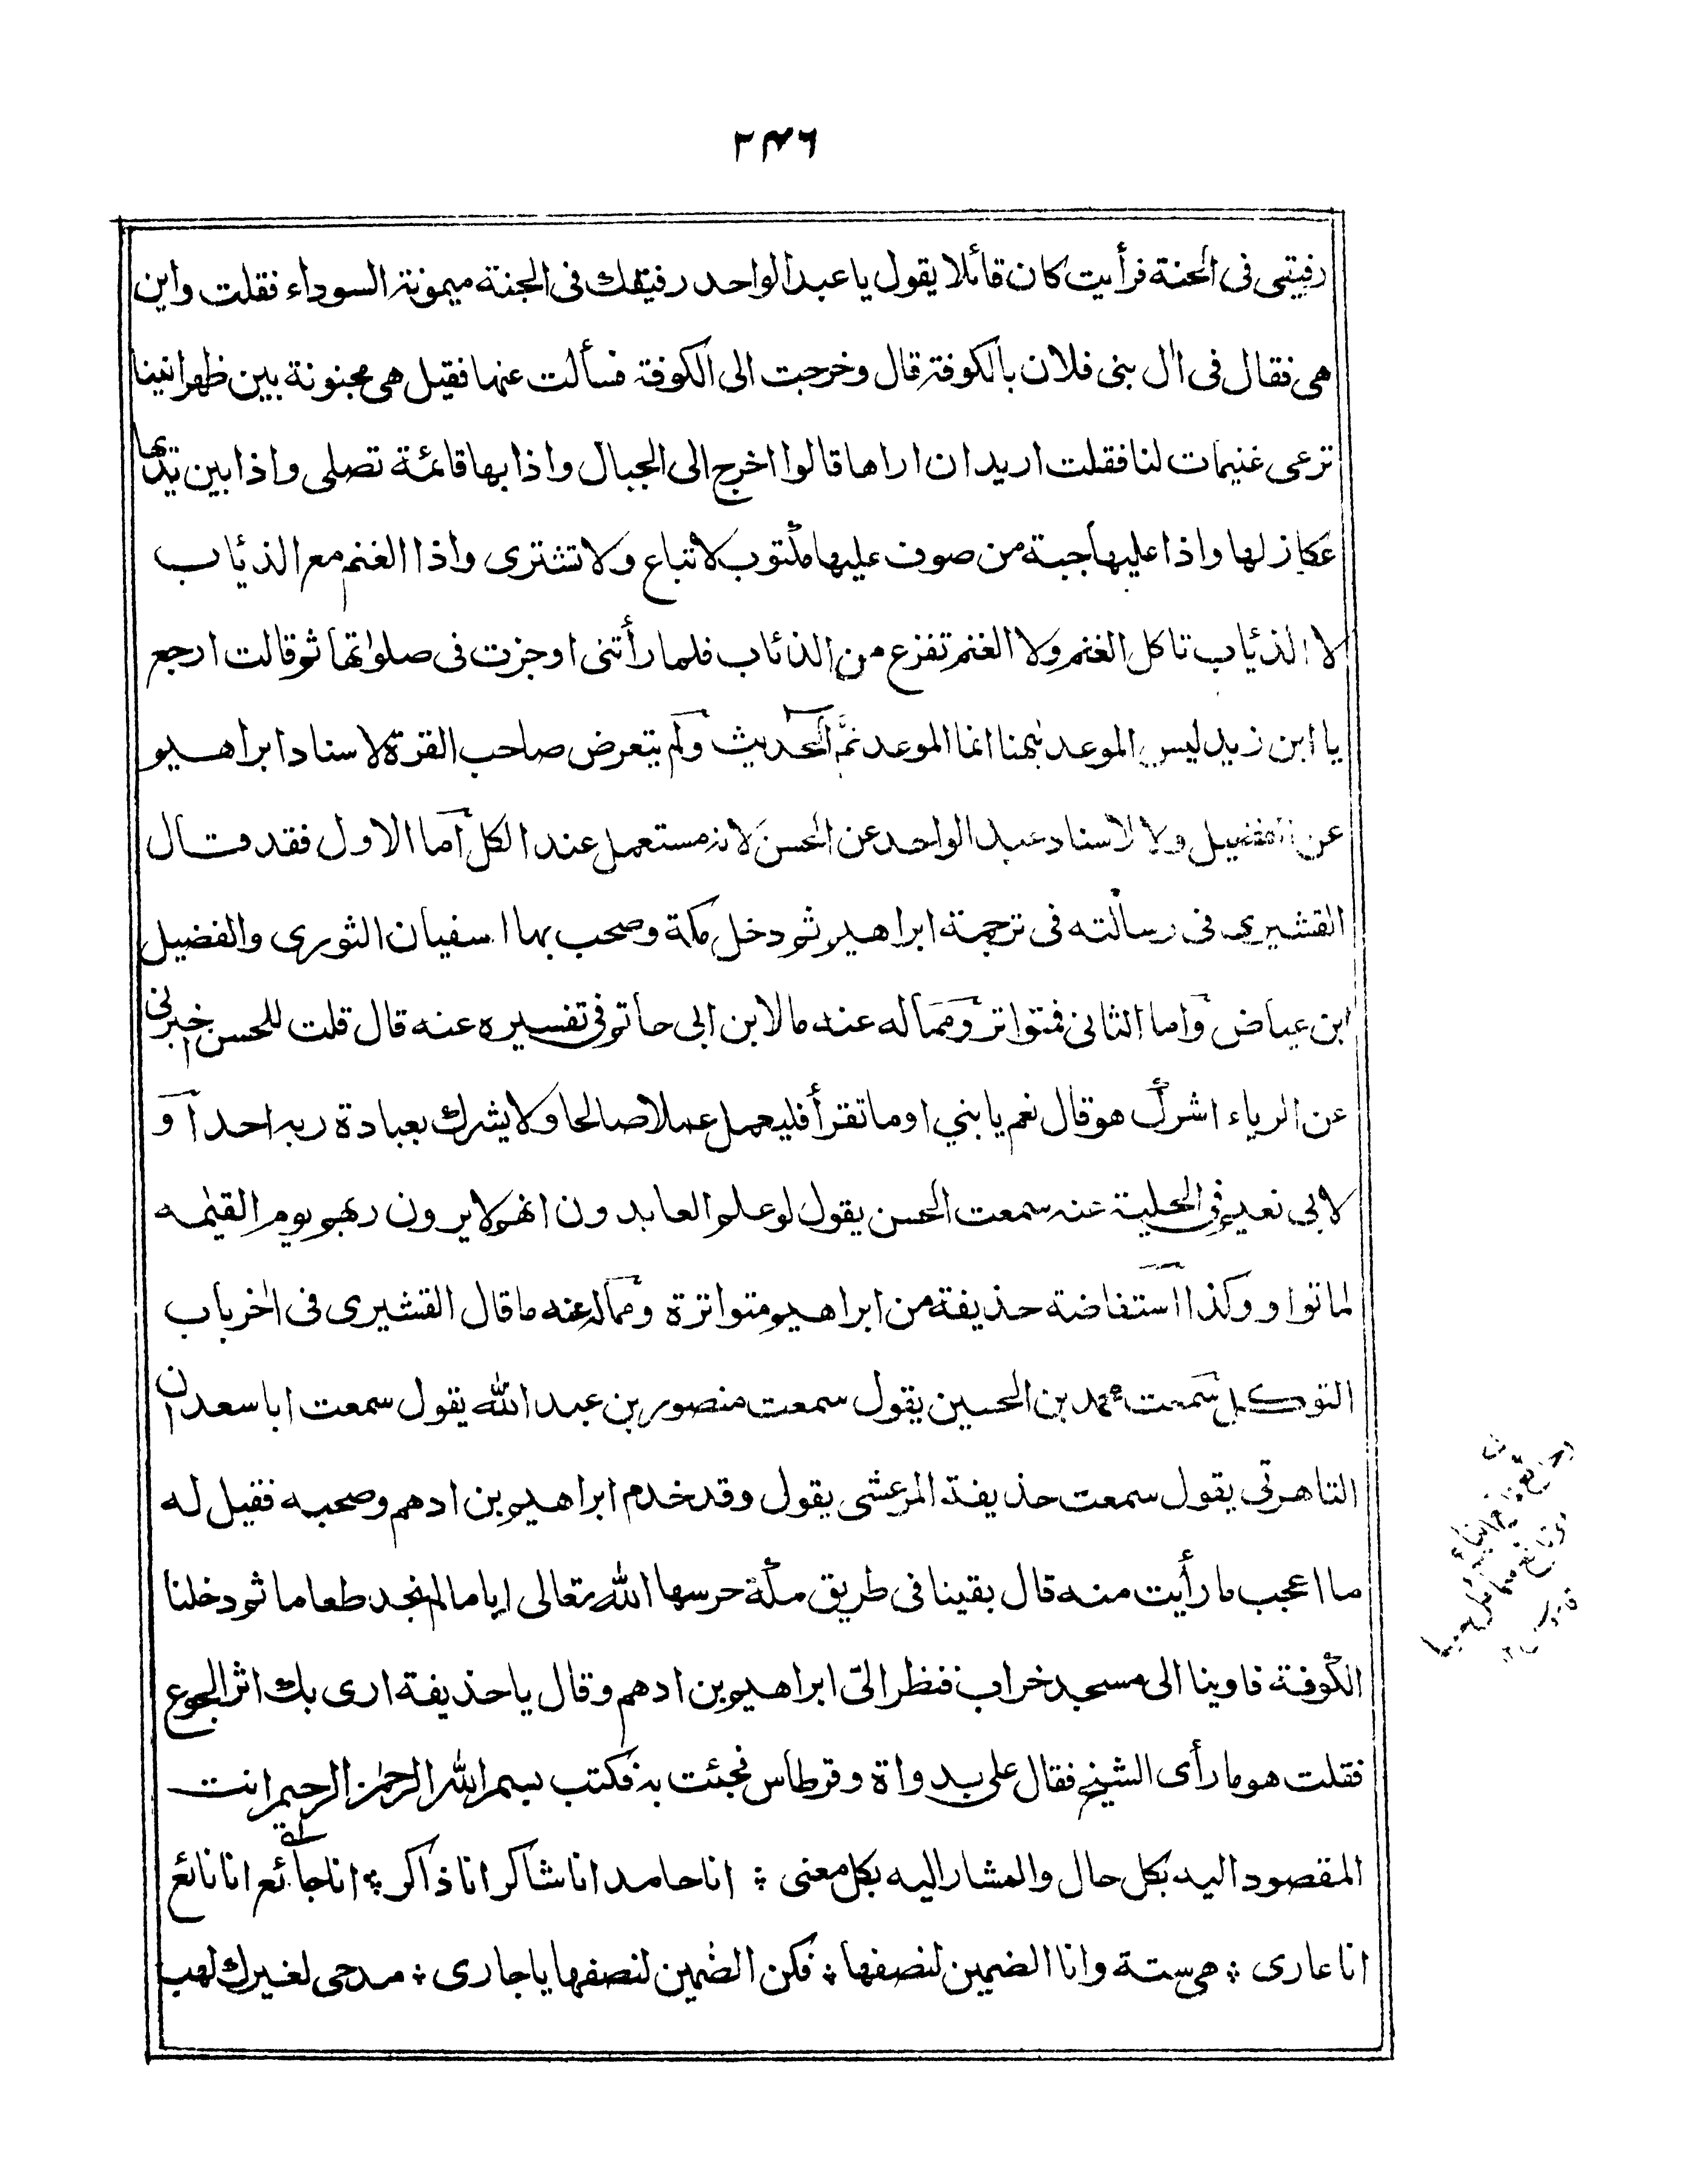 ٢٤٦
رفيقى فى الجنة فرأيت كان قائلا يقول يا عبد الواحد رفيقك فى الجنة ميمونة السوداء فقلت واين
هى فقال فى اٰل بنى فلان بالكوفة قال وخرجت الى الكوفة فسألت عنها فقيل هى مجنونة بين ظهرانينا
ترعى غنيمات لنا فقلت اريد ان اراها قالوا اخرج الى الجبال واذا بها قائمة تصلى واذا بين يديها
عكاز لها واذا عليها جبة من صوف عليها مكتوب لا تباع ولا تشترى واذا الغنم مع الذئاب
لا الذئاب تاكل الغنم ولا الغنم تفزع من الذئاب فلما رأتنى اوجزت فى صلوٰتها ثم قالت ارجع
يا ابن زيد ليس الموعد ههنا انما الموعد ثمَّ الحديث ولم يتعرض صاحب القرة لاسناد ابراهيم
عن الفضيل ولا لاسناد عبد الواحد عن الحسن لانه مستعمل عند الكل اما الاول فقد قال
القشيرى فى رسالته فى ترجمة ابراهيم ثم دخل مكة وصحب بها سفيان الثورى والفضيل
ابن عياض واما الثانى فمتواتر ومما له عنه ما لابن ابى حاتم فى تفسيره عنه قال قلت للحسن اخبرنى
عن الرياء اشرك هو قال نعم يا بني او ما تقرأ فليعمل عملا صالحا ولا يشرك بعبادة ربه احدا و
لابى نعيم فى الحلية عنه سمعت الحسن يقول لو علم العابدون انهم لا يرون ربهم يوم القيٰمه
لماتوا و وكذا استفاضة حذيفة من ابراهيم متواترة ومما له عنه ما قال القشيرى فى اٰخر باب
التوكل سمعت محمد بن الحسين يقول سمعت منصور بن عبد الله يقول سمعت ابا سعدان
التاهرتى يقول سمعت حذيفة المرعشى يقول وقد خدم ابراهيم بن ادهم وصحبه فقيل له
ما اعجب ما رأيت منه قال بقينا فى طريق مكة حرسها الله تعالى اياما لم نجد طعاما ثم دخلنا
الكوفة فاوينا الى مسجد خراب فنظر الىّ ابراهيم بن ادهم وقال يا حذيفة ارى بك اثر الجوع
فقلت هو ما رأى الشيخ فقال علي بدواة وقرطاس فجئت به فكتب بسم الله الرحمٰن الرحيم انت
المقصود اليه بكل حال والمشار اليه بكل معنى ؛ انا حامد انا شاكر انا ذاكر ؛ انا جائع انا نائع
انا عارى ؛ هى ستة وانا الضمين لنصفها ؛ فكن الضمين لنصفها يا جارى ؛ مدحى لغيرك لهب